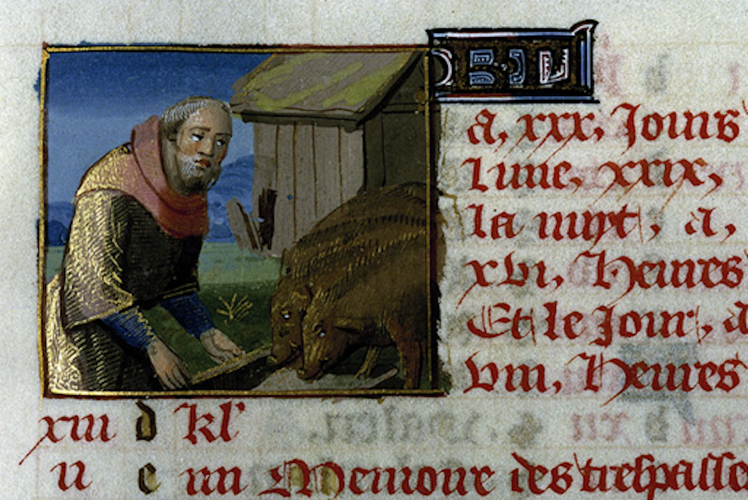 a, xxx, Jours
lune, xxix,
la nuyt, a,
xvi, Heures
Et le Jour, a
viii, Heures
xiii d kl'
ii e iiii Memoire des trespasse